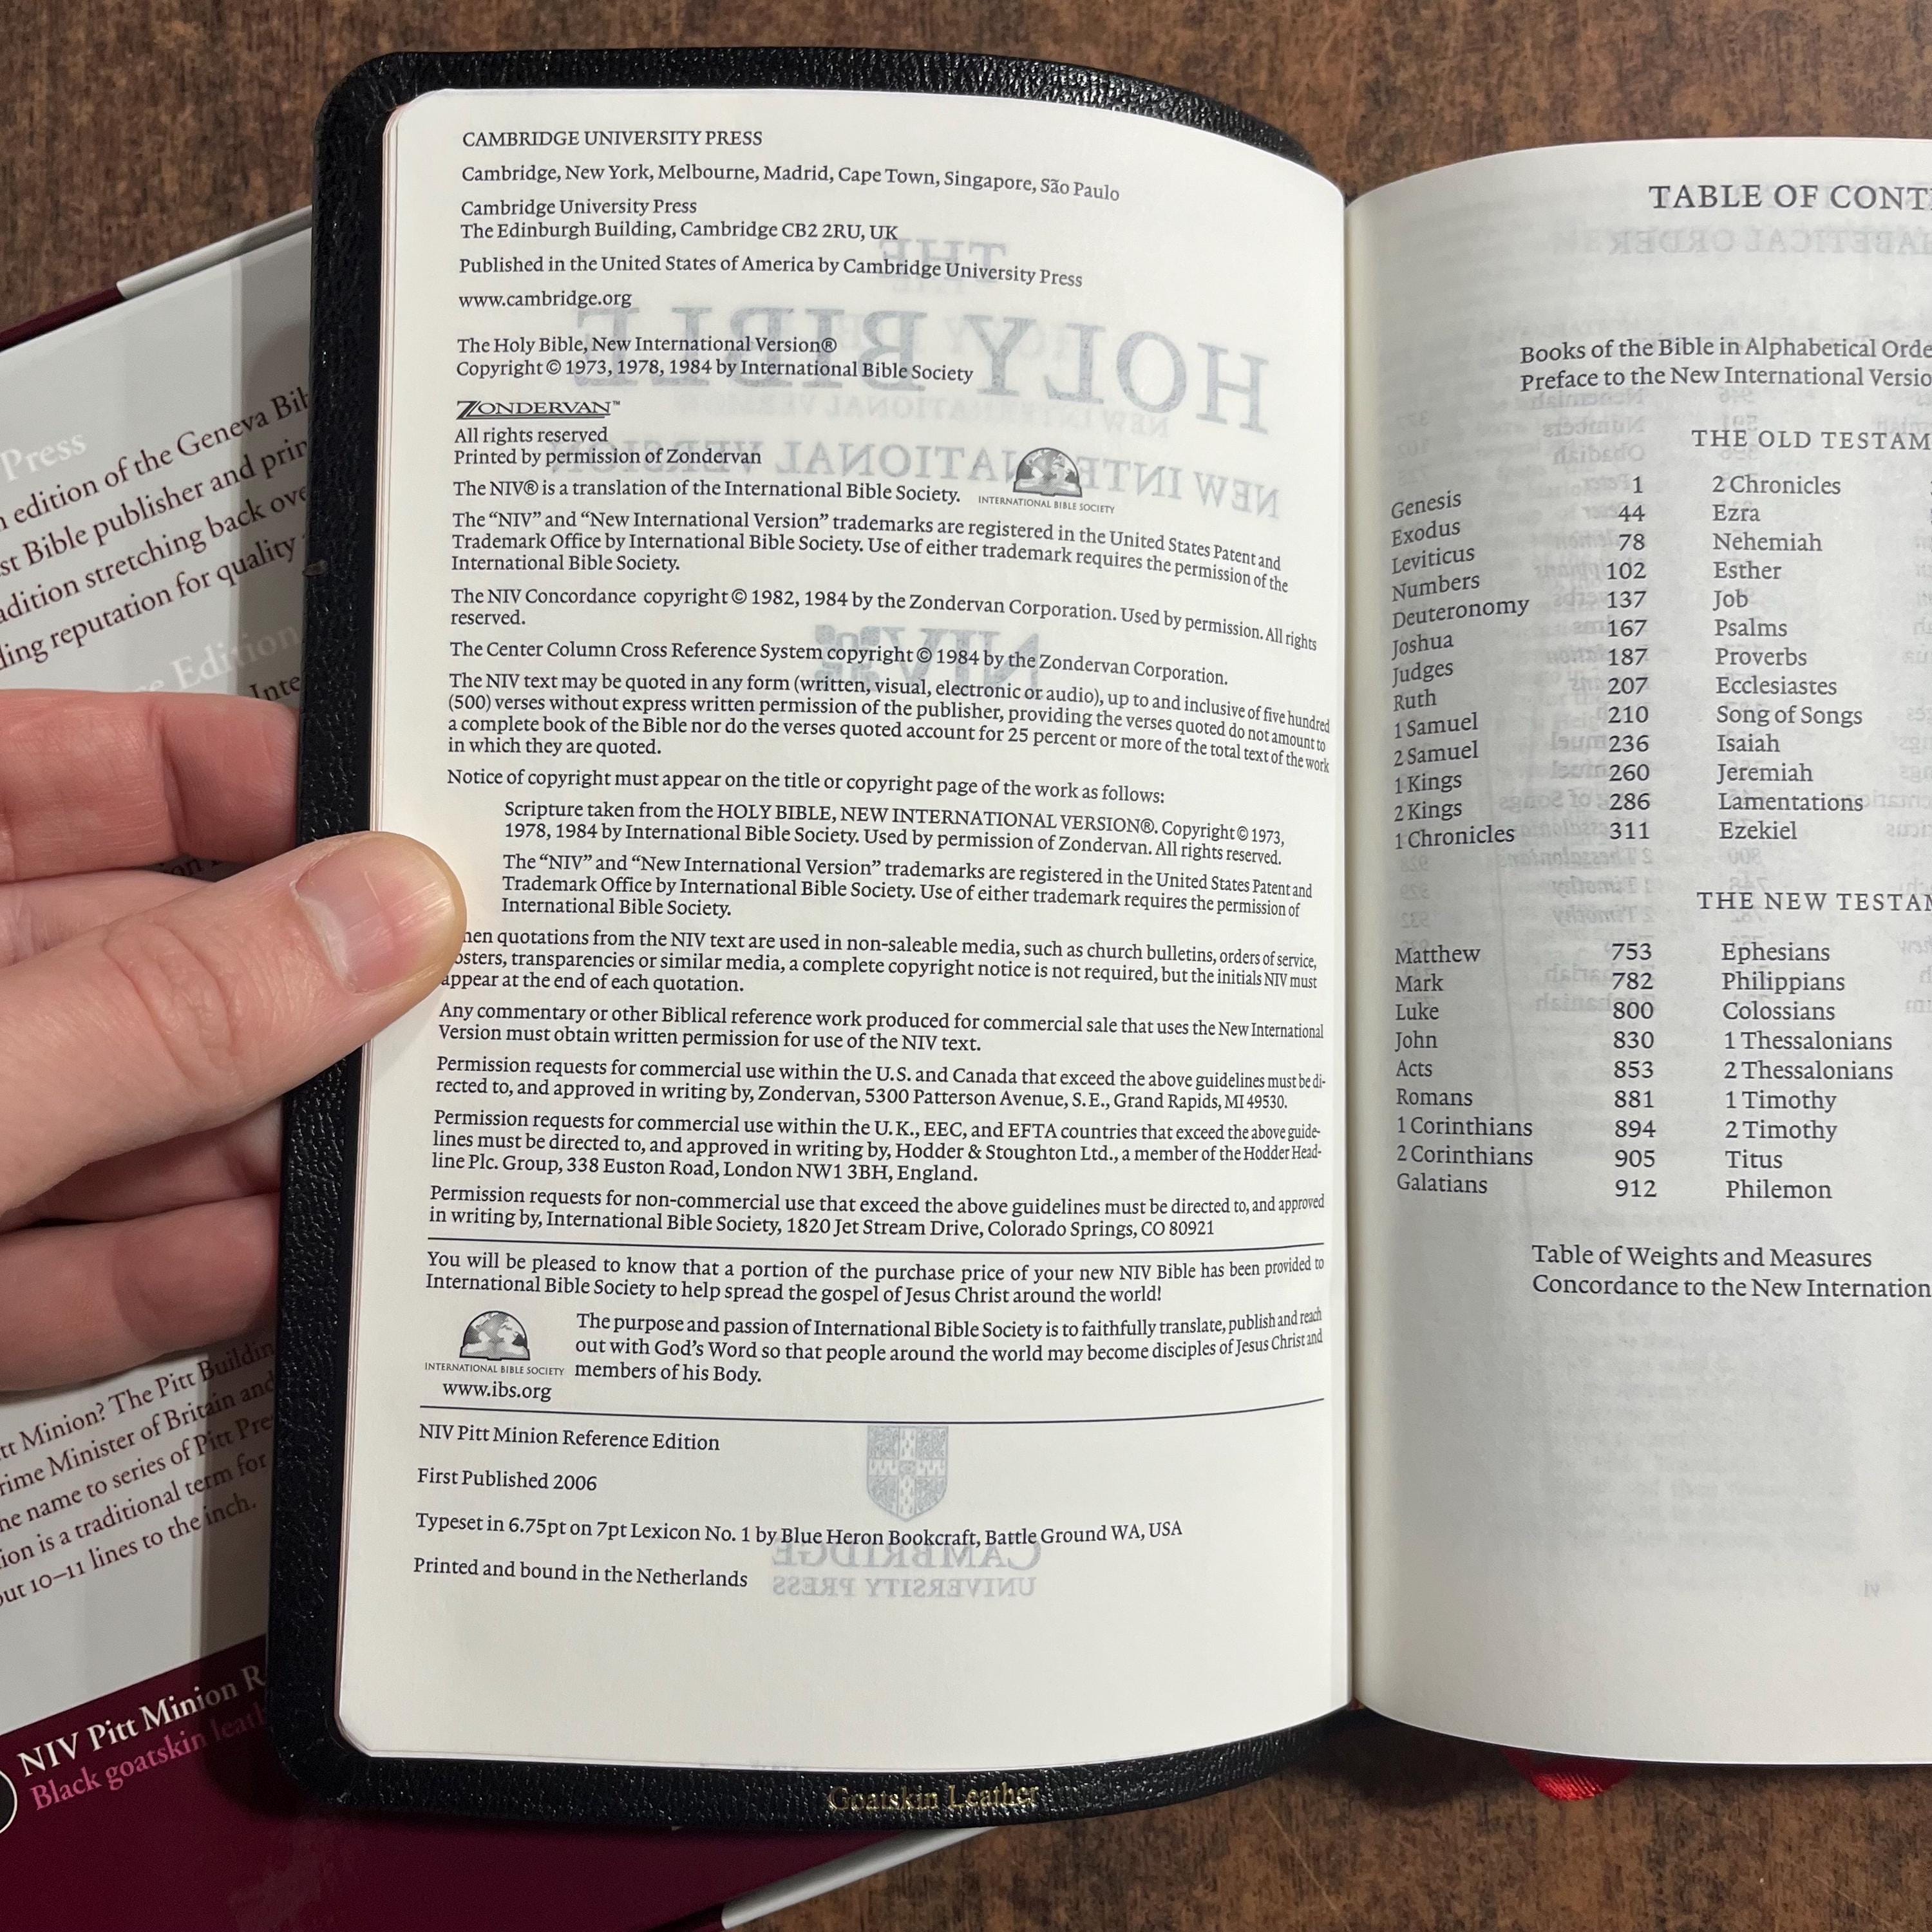 CAMBRIDGE UNIVERSITY PRESS
Cambridge, New York, Melbourne, Madrid, Cape Town, Singapore, São Paulo
Cambridge University Press
The Edinburgh Building, Cambridge CB2 2RU, UK
Published in the United States of America by Cambridge University Press
www.cambridge.org
The Holy Bible, New International Version®
Copyright © 1973, 1978, 1984 by International Bible Society
ZONDERVAN™
All rights reserved
Printed by permission of Zondervan
The NIV® is a translation of the International Bible Society.
INTERNATIONAL BIBLE SOCIETY
The “NIV” and “New International Version” trademarks are registered in the United States Patent and
Trademark Office by International Bible Society. Use of either trademark requires the permission of the
International Bible Society.
The NIV Concordance copyright © 1982, 1984 by the Zondervan Corporation. Used by permission. All rights
reserved.
The Center Column Cross Reference System copyright © 1984 by the Zondervan Corporation.
The NIV text may be quoted in any form (written, visual, electronic or audio), up to and inclusive of five hundred
(500) verses without express written permission of the publisher, providing the verses quoted do not amount to
a complete book of the Bible nor do the verses quoted account for 25 percent or more of the total text of the work
in which they are quoted.
Notice of copyright must appear on the title or copyright page of the work as follows:
Scripture taken from the HOLY BIBLE, NEW INTERNATIONAL VERSION®. Copyright © 1973,
1978, 1984 by International Bible Society. Used by permission of Zondervan. All rights reserved.
The “NIV” and “New International Version” trademarks are registered in the United States Patent and
Trademark Office by International Bible Society. Use of either trademark requires the permission of
International Bible Society.
hen quotations from the NIV text are used in non-saleable media, such as church bulletins, orders of service,
osters, transparencies or similar media, a complete copyright notice is not required, but the initials NIV must
appear at the end of each quotation.
Any commentary or other Biblical reference work produced for commercial sale that uses the New International
Version must obtain written permission for use of the NIV text.
Permission requests for commercial use within the U.S. and Canada that exceed the above guidelines must be di-
rected to, and approved in writing by, Zondervan, 5300 Patterson Avenue, S.E., Grand Rapids, MI 49530.
Permission requests for commercial use within the U.K., EEC, and EFTA countries that exceed the above guide-
lines must be directed to, and approved in writing by, Hodder & Stoughton Ltd., a member of the Hodder Head-
line Plc. Group, 338 Euston Road, London NW1 3BH, England.
Permission requests for non-commercial use that exceed the above guidelines must be directed to, and approved
in writing by, International Bible Society, 1820 Jet Stream Drive, Colorado Springs, CO 80921
You will be pleased to know that a portion of the purchase price of your new NIV Bible has been provided to
International Bible Society to help spread the gospel of Jesus Christ around the world!
The purpose and passion of International Bible Society is to faithfully translate, publish and reach
out with God’s Word so that people around the world may become disciples of Jesus Christ and
members of his Body.
INTERNATIONAL BIBLE SOCIETY
www.ibs.org
NIV Pitt Minion Reference Edition
First Published 2006
Typeset in 6.75pt on 7pt Lexicon No. 1 by Blue Heron Bookcraft, Battle Ground WA, USA
Printed and bound in the Netherlands
Goatskin Leather
TABLE OF CONT
Books of the Bible in Alphabetical Orde
Preface to the New International Versio
THE OLD TESTAM
Genesis 1 2 Chronicles
Exodus 44 Ezra
Leviticus 78 Nehemiah
Numbers 102 Esther
Deuteronomy 137 Job
Joshua 167 Psalms
Judges 187 Proverbs
Ruth 207 Ecclesiastes
1 Samuel 210 Song of Songs
2 Samuel 236 Isaiah
1 Kings 260 Jeremiah
2 Kings 286 Lamentations
1 Chronicles 311 Ezekiel
THE NEW TESTAM
Matthew 753 Ephesians
Mark 782 Philippians
Luke 800 Colossians
John 830 1 Thessalonians
Acts 853 2 Thessalonians
Romans 881 1 Timothy
1 Corinthians 894 2 Timothy
2 Corinthians 905 Titus
Galatians 912 Philemon
Table of Weights and Measures
Concordance to the New Internation
Press
edition of the Geneva Bib
st Bible publisher and prin
dition stretching back ove
ding reputation for quality
Edition
Inte
tt Minion? The Pitt Buildin
rime Minister of Britain and
he name to series of Pitt Pre
ion is a traditional term for
out 10–11 lines to the inch.
NIV Pitt Minion R
Black goatskin leath